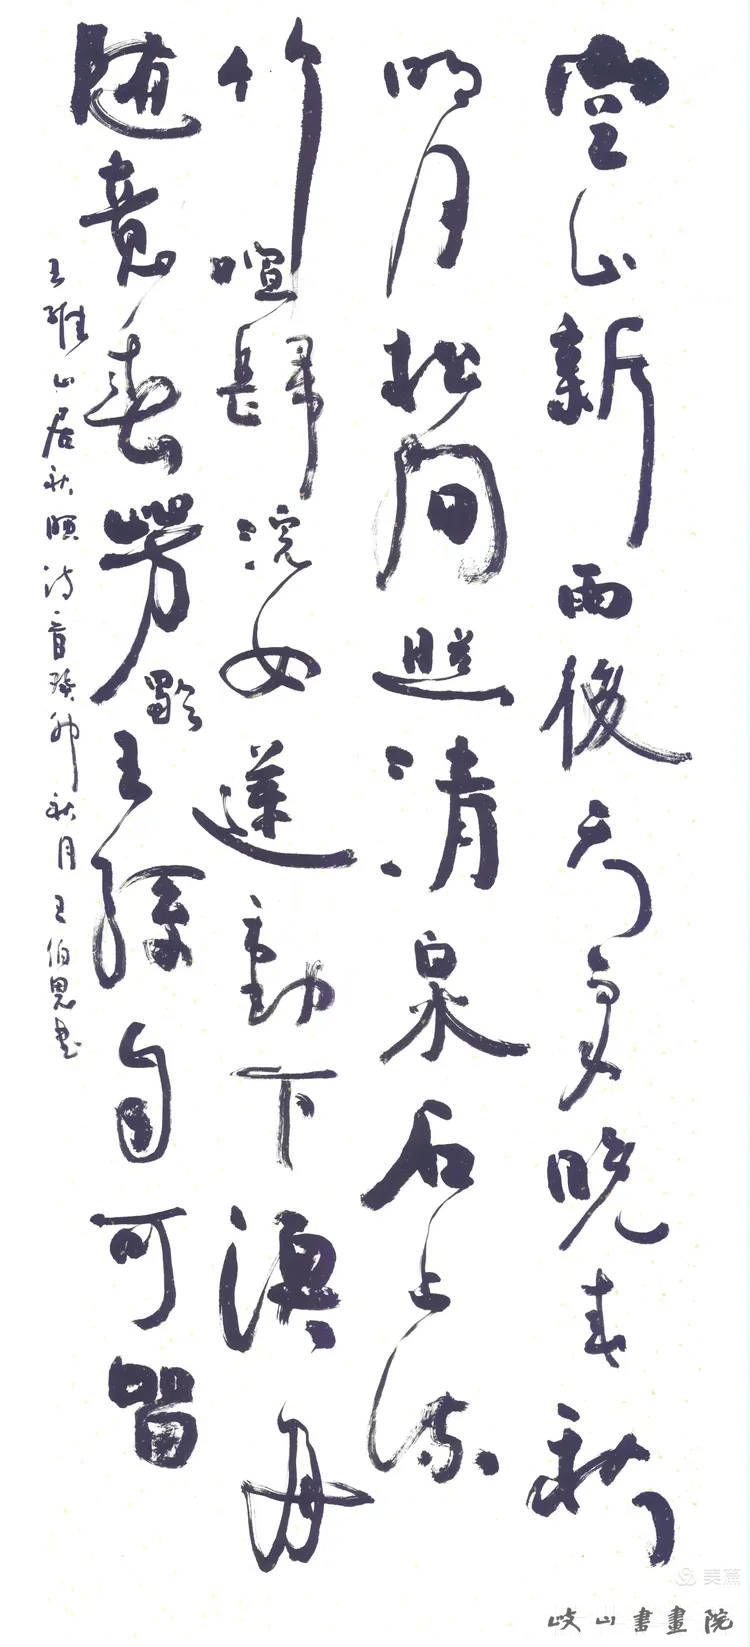 空山新雨後天氣晚来秋
明月松間照清泉石上流
竹喧歸浣女蓮動下漁舟
随意春芳歇王孫自可留
王維山居秋暝詩一首癸卯秋月王伯書
美篇
岐山書畫院